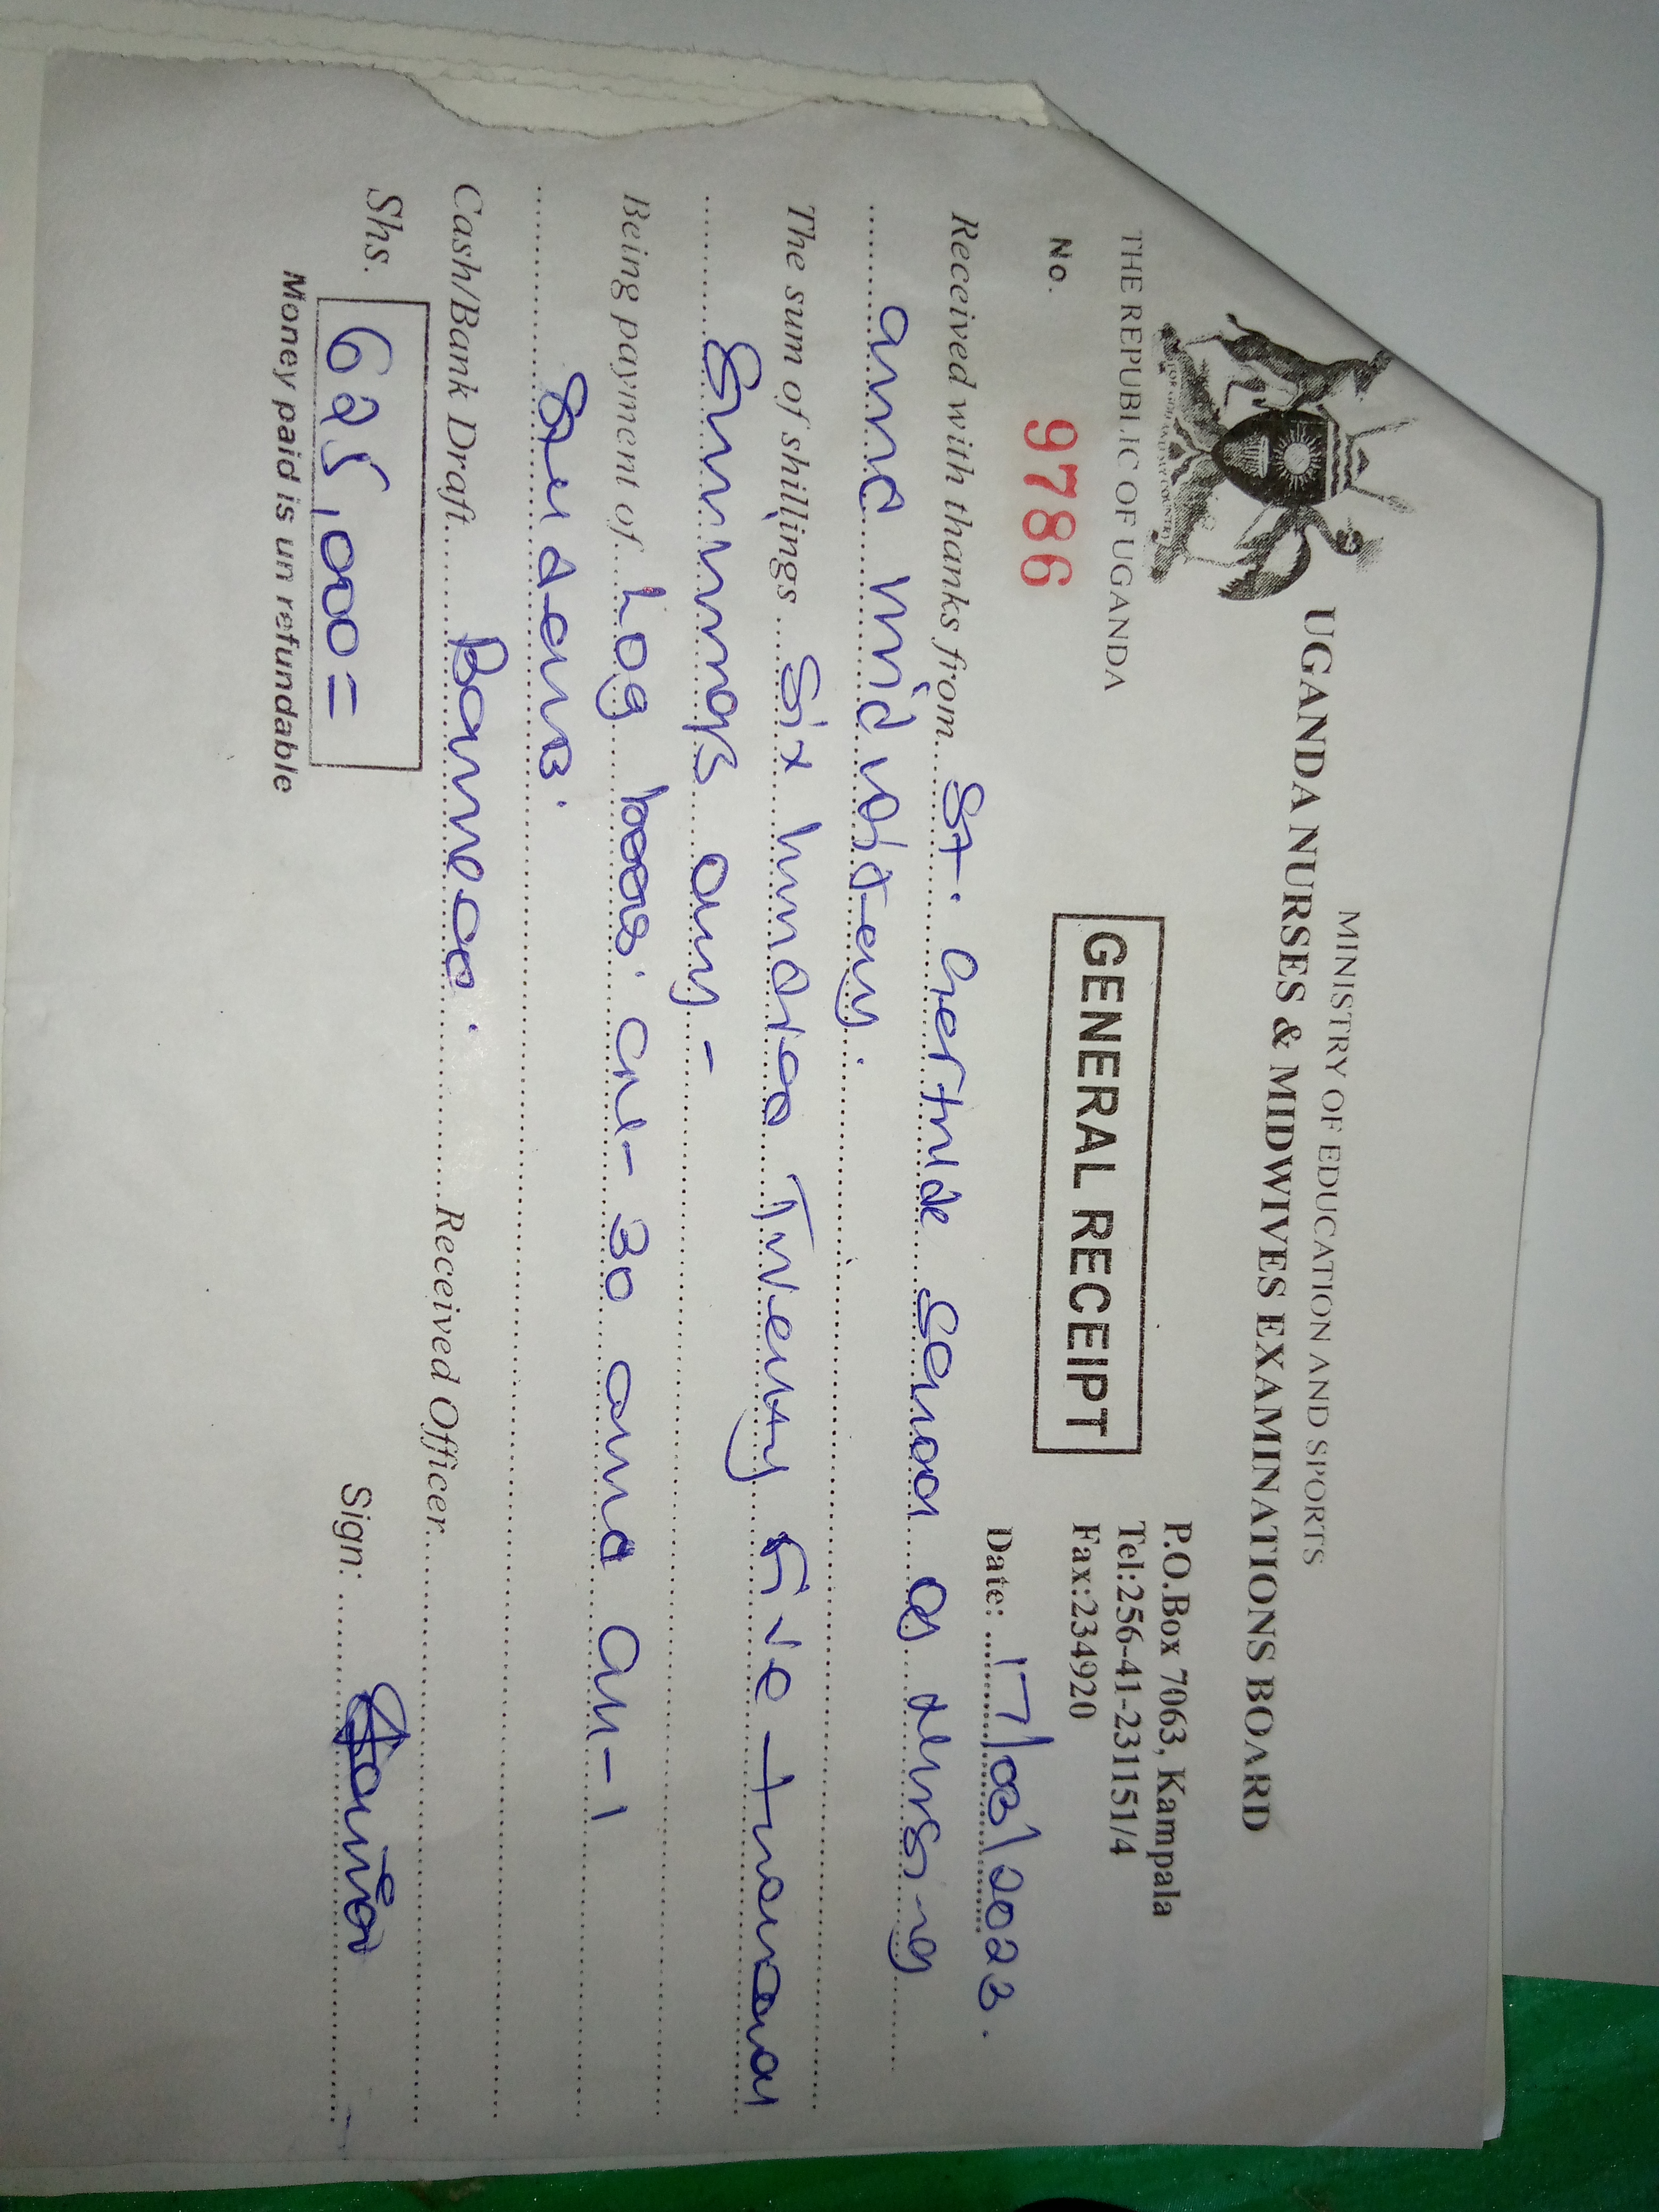 MINISTRY OF EDUCATION AND SPORTS
UGANDA NURSES & MIDWIVES EXAMINATIONS BOARD
THE REPUBLIC OF UGANDA
P.O.Box 7063, Kampala
Tel:256-41-231151/4
Fax:234920
No. 9786
GENERAL RECEIPT
Date: 17/03/2023.
Received with thanks from St. Gertrude School of Nursing
and midwifery.
The sum of shillings Six hundred Twenty five thousand
Shillings only -
Being payment of Log books CN- 30 and CM-1
Students.
Cash/Bank Draft Banked. Received Officer
Shs. 625,000=
Sign:
Money paid is un refundable